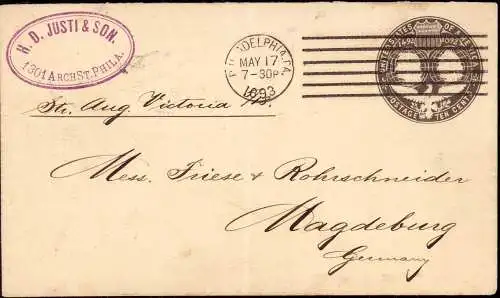 H. D. JUSTI & SON.
1301 ARCH ST. PHILA.
PHILADELPHIA, PA.
MAY 17
7-30P
1893
UNITED STATES OF AMERICA
1492 1892
POSTAGE TEN CENTS
Str. Aug. Victoria
Mess. Friese & Rohrschneider
Magdeburg
Germany